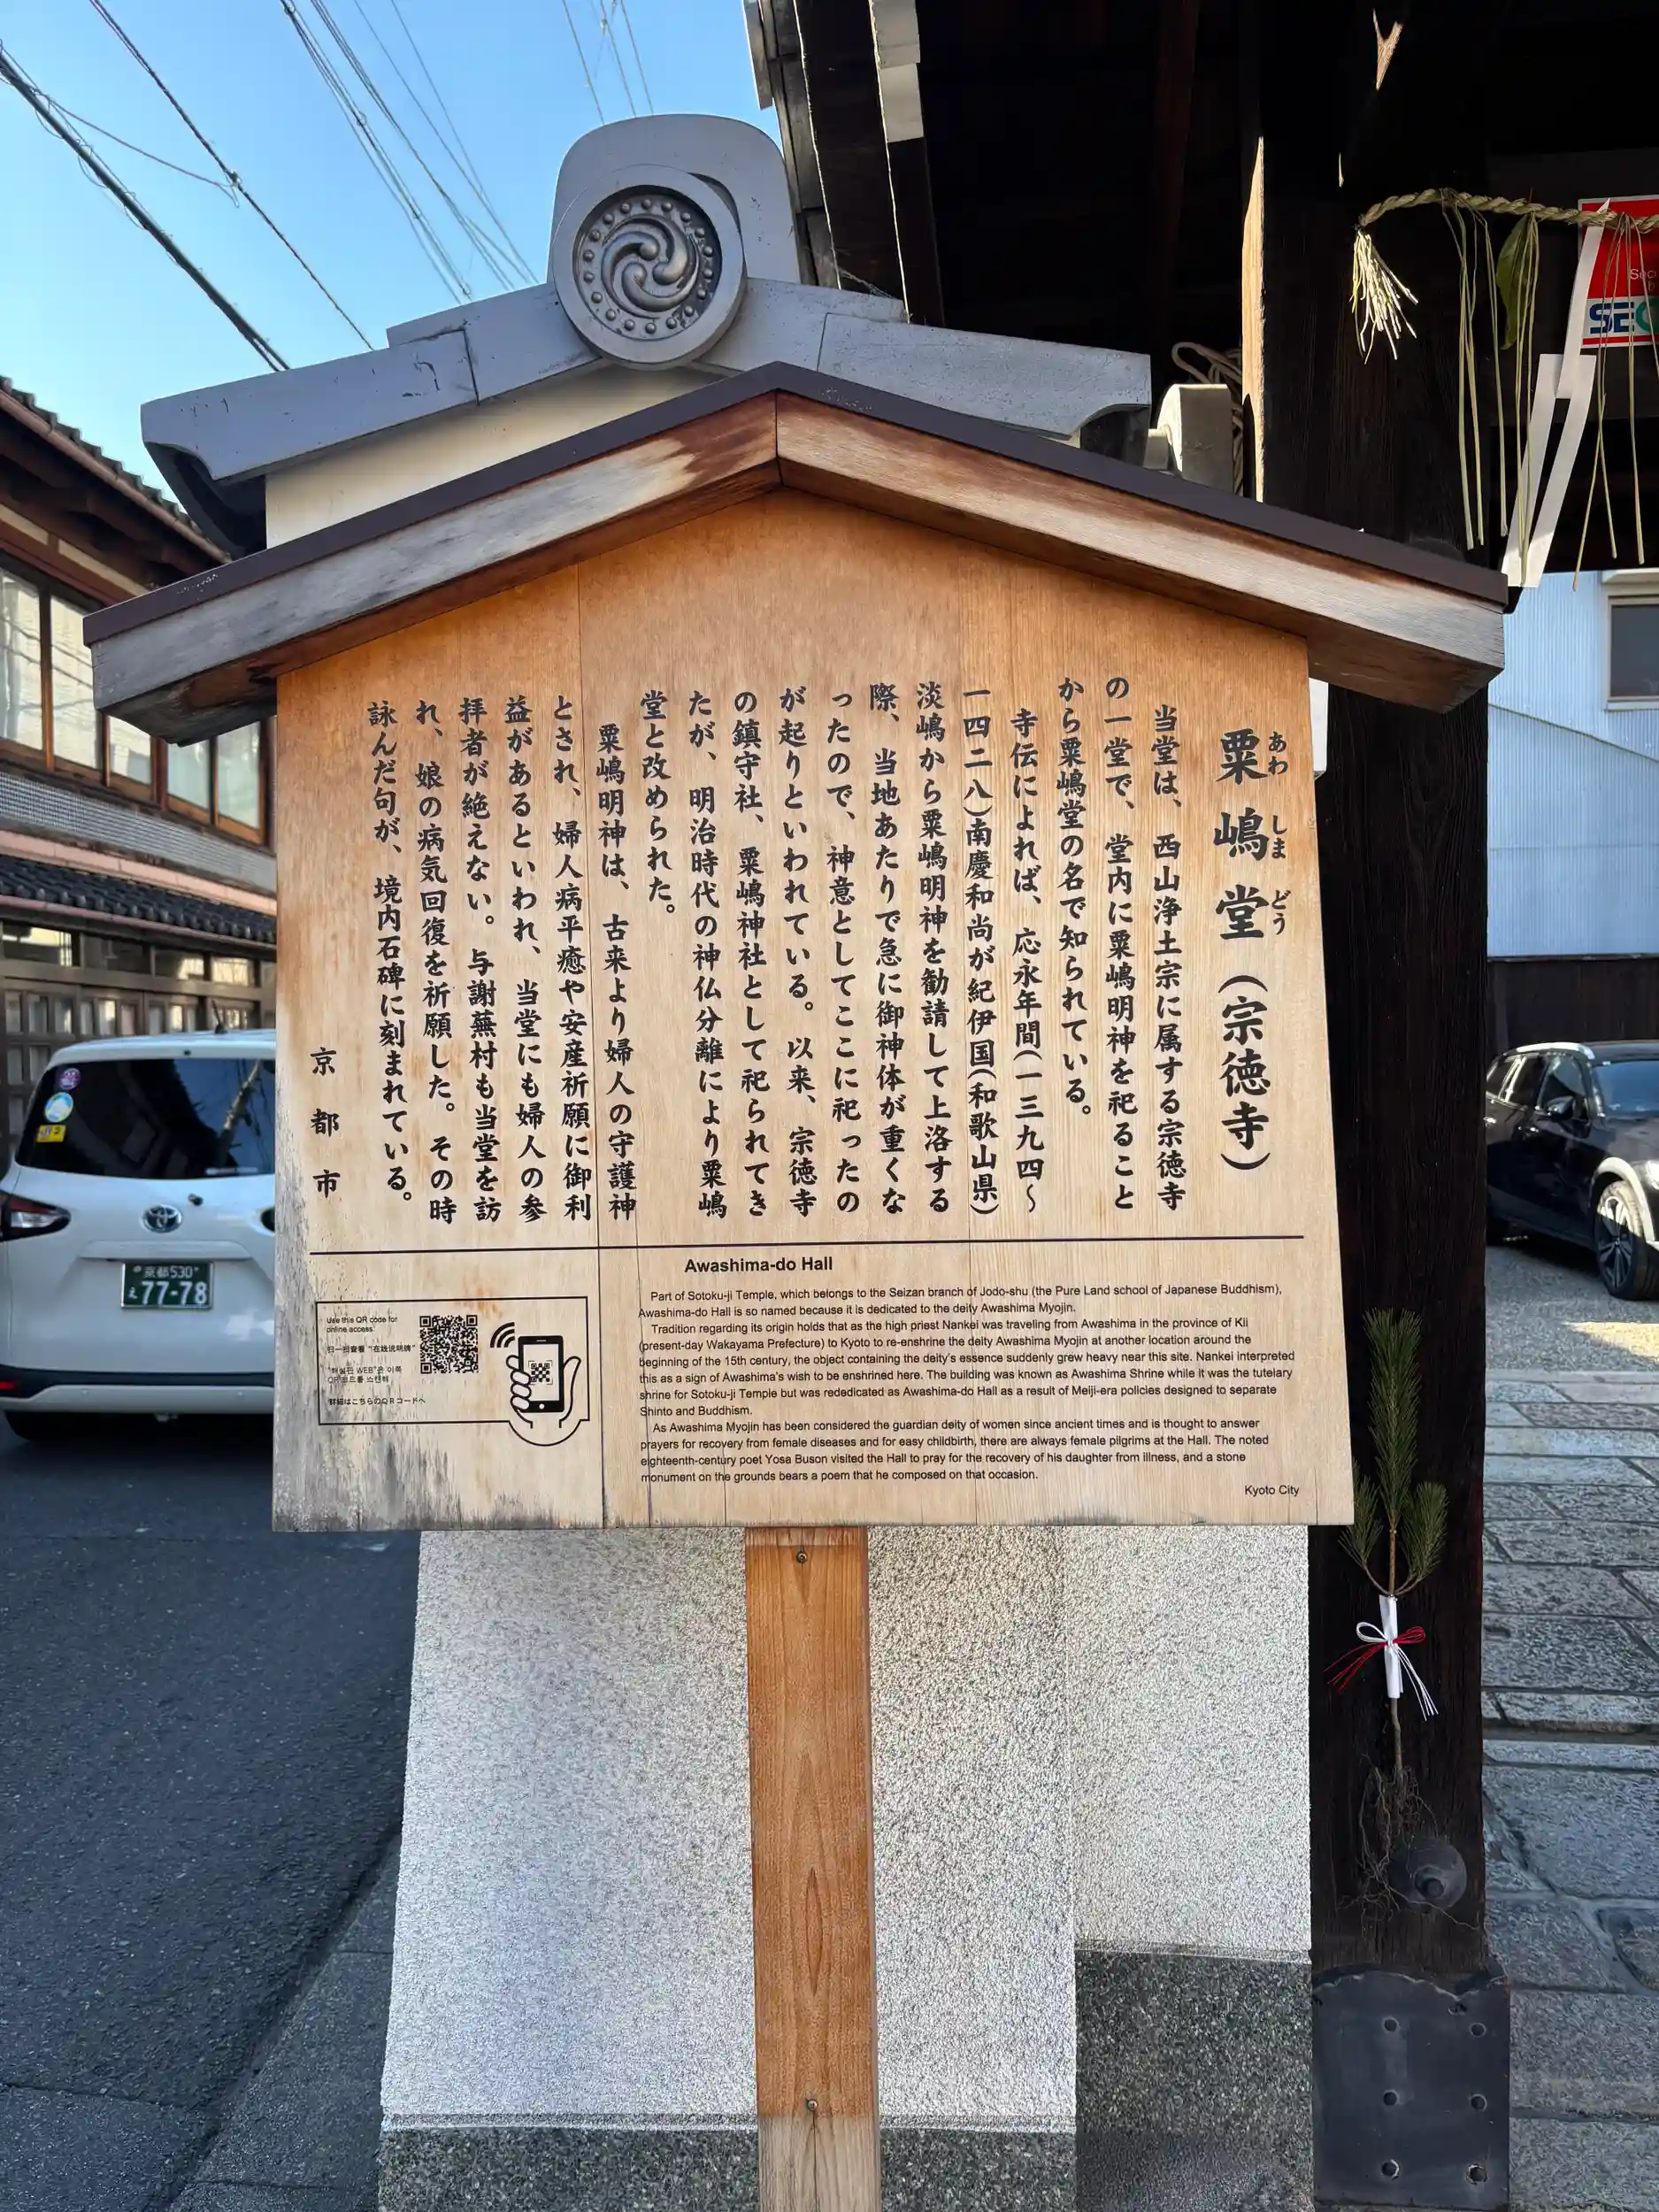 粟嶋堂（宗徳寺）
あわ しま どう
当堂は、西山浄土宗に属する宗徳寺
の一堂で、堂内に粟嶋明神を祀ること
から粟嶋堂の名で知られている。
寺伝によれば、応永年間（一三九四～
一四二八）南慶和尚が紀伊国（和歌山県）
淡嶋から粟嶋明神を勧請して上洛する
際、当地あたりで急に御神体が重くな
ったので、神意としてここに祀ったの
が起りといわれている。以来、宗徳寺
の鎮守社、粟嶋神社として祀られてき
たが、明治時代の神仏分離により粟嶋
堂と改められた。
粟嶋明神は、古来より婦人の守護神
とされ、婦人病平癒や安産祈願に御利
益があるといわれ、当堂にも婦人の参
拝者が絶えない。与謝蕪村も当堂を訪
れ、娘の病気回復を祈願した。その時
詠んだ句が、境内石碑に刻まれている。
京都市
Awashima-do Hall
Part of Sotoku-ji Temple, which belongs to the Seizan branch of Jodo-shu (the Pure Land school of Japanese Buddhism),
Awashima-do Hall is so named because it is dedicated to the deity Awashima Myojin.
Tradition regarding its origin holds that as the high priest Nankei was traveling from Awashima in the province of Kii
(present-day Wakayama Prefecture) to Kyoto to re-enshrine the deity Awashima Myojin at another location around the
beginning of the 15th century, the object containing the deity's essence suddenly grew heavy near this site. Nankei interpreted
this as a sign of Awashima's wish to be enshrined here. The building was known as Awashima Shrine while it was the tutelary
shrine for Sotoku-ji Temple but was rededicated as Awashima-do Hall as a result of Meiji-era policies designed to separate
Shinto and Buddhism.
As Awashima Myojin has been considered the guardian deity of women since ancient times and is thought to answer
prayers for recovery from female diseases and for easy childbirth, there are always female pilgrims at the Hall. The noted
eighteenth-century poet Yosa Buson visited the Hall to pray for the recovery of his daughter from illness, and a stone
monument on the grounds bears a poem that he composed on that occasion.
Kyoto City
Use this QR code for
online access.
扫一扫查看 "在线说明牌"
"해설판 WEB"은 이쪽
QR코드를 스캔해
詳細はこちらのQRコードへ
京都 530
え 77-78
SEC